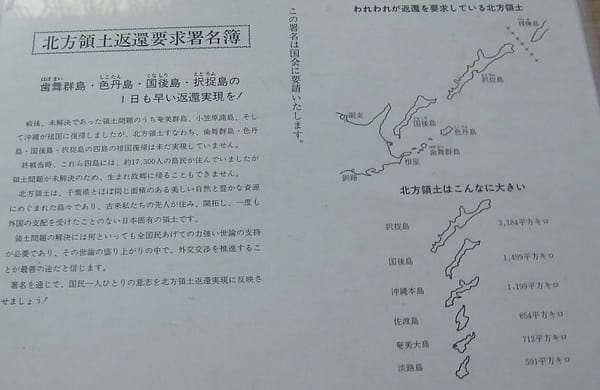 北方領土返還要求署名簿
はぼまい しこたん くなしり えとろふ
歯舞群島・色丹島・国後島・択捉島の
1日も早い返還実現を!
戦後、未解決であった領土問題のうち奄美群島、小笠原諸島、そし
て沖縄が祖国に復帰しましたが、北方領土すなわち、歯舞群島・色丹
島・国後島・択捉島の四島の祖国復帰は未だ実現していません。
終戦当時、これら四島には、約17,300人の島民が住んでいましたが
領土問題が未解決のため、生まれ故郷に帰ることもできません。
北方領土は、千葉県とほぼ同じ面積のある美しい自然と豊かな資源
にめぐまれた島々であり、古来私たちの先人が住み、開拓し、一度も
外国の支配を受けたことのない日本固有の領土です。
領土問題の解決には何といっても全国民あげての力強い世論の支持
が必要であり、その世論の盛り上がりの中で、外交交渉を推進するこ
とが最善の途だと信じます。
署名を通じて、国民一人ひとりの意志を北方領土返還実現に反映さ
せましょう!
この署名は国会に要請いたします。
われわれが返還を要求している北方領土
得撫島
択捉島
網走
国後島
色丹島
歯舞群島
根室
釧路
北方領土はこんなに大きい
択捉島 3,184平方キロ
国後島 1,499平方キロ
沖縄本島 1,199平方キロ
佐渡島 854平方キロ
奄美大島 712平方キロ
淡路島 591平方キロ